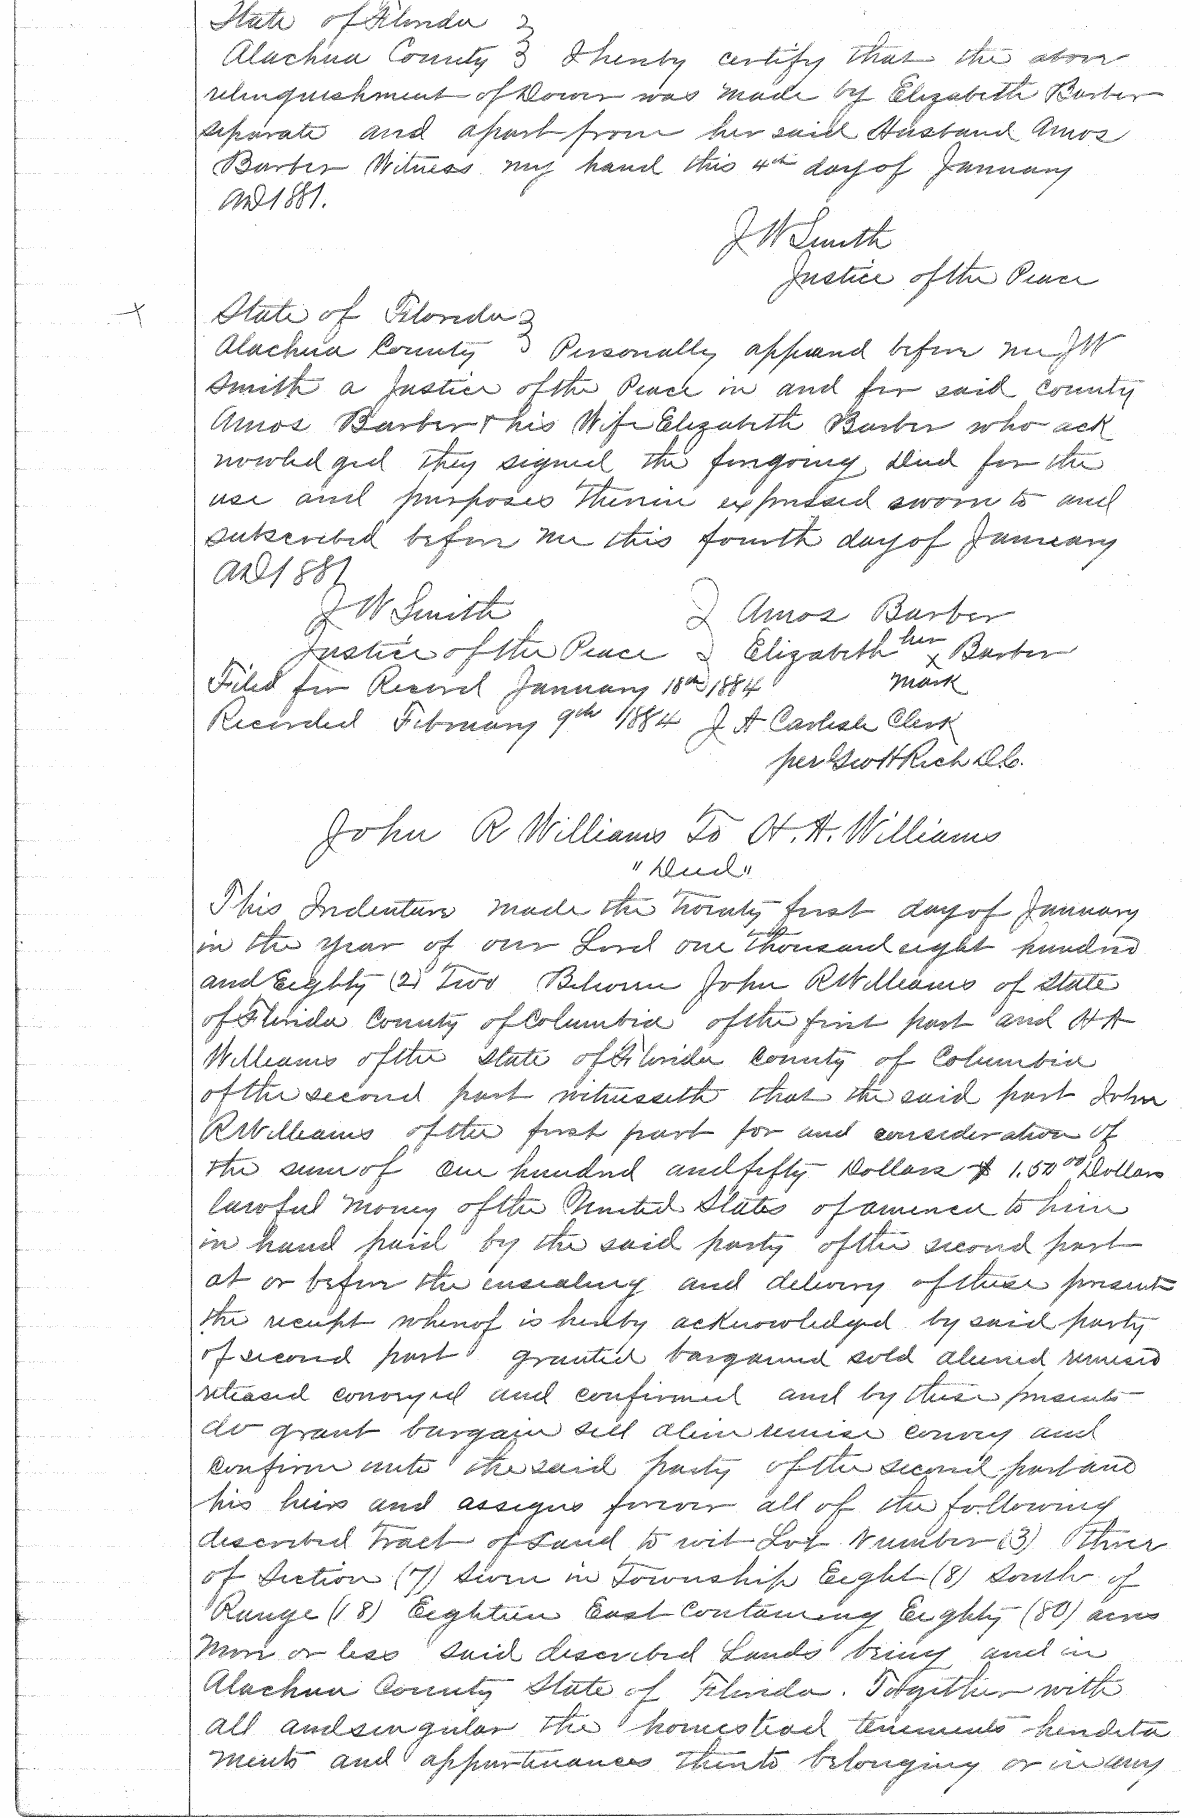 State of Florida }
Alachua County } I hereby certify that the above
relinquishment of Dower was made by Elizabeth Barber
separate and apart from her said Husband Amos
Barber Witness my hand this 4th day of January
AD 1881.
J W Smith
Justice of the Peace
x
State of Florida }
Alachua County } Personally appeared before me J W
Smith a Justice of the Peace in and for said County
Amos Barber & his Wife Elizabeth Barber who ack
nowledged they signed the foregoing Deed for the
use and purposes therein expressed sworn to and
subscribed before me this fourth day of January
AD 1881
J W Smith } Amos Barber
Justice of the Peace } Elizabeth her x mark Barber
Filed for Record January 18th 1884
Recorded February 9th 1884 J A Carlisle Clerk
per Geo H Rich D.C.
John R Williams To H. A. Williams
"Deed"
This Indenture made the Twenty first day of January
in the year of our Lord one thousand eight hundred
and Eighty (2) Two Between John R Williams of State
of Florida County of Columbia of the first part and H A
Williams of the State of Florida County of Columbia
of the second part witnesseth that the said part John
R Williams of the first part for and consideration of
the sum of One hundred and fifty Dollars $ 1.50 00 Dollars
lawful money of the United States of america to him
in hand paid by the said party of the second part
at or before the ensealing and delivery of these presents
the receipt whereof is hereby acknowledged by said party
of second part granted bargained sold aliened remised
released conveyed and confirmed and by these presents
do grant bargain sell alien remise convey and
confirm unto the said party of the second part and
his heirs and assigns forever all of the following
described Tract of Land to wit Lot Number (3) Three
of Section (7) Seven in Township Eight (8) South of
Range (18) Eighteen East Containing Eighty (80) acres
More or less said described Lands being and in
Alachua County State of Florida. Together with
all and singular the homestead tenements heredita
ments and appurtenances thereto belonging or in any